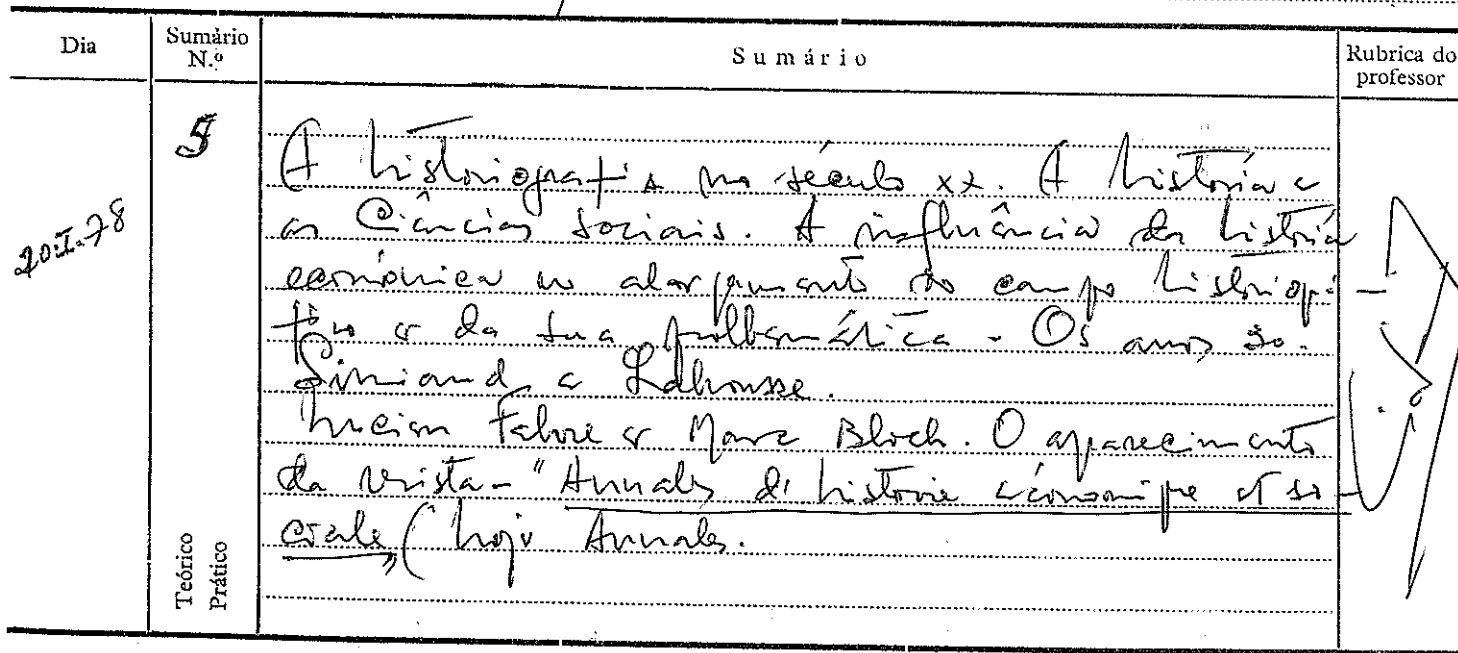 Dia
Sumário
N.º
Sumário
Rubrica do
professor
20.I.78
5
A historiografia no século XX. A história e
as Ciências sociais. A influência da história
económica no alargamento do campo historiográ-
fico e da sua problemática - Os anos 30.
Simiand e Labrousse.
Lucien Febvre e Marc Bloch. O aparecimento
da revista - "Annales d'histoire économique et so-
ciale" (hoje Annales.
Teórico
Prático